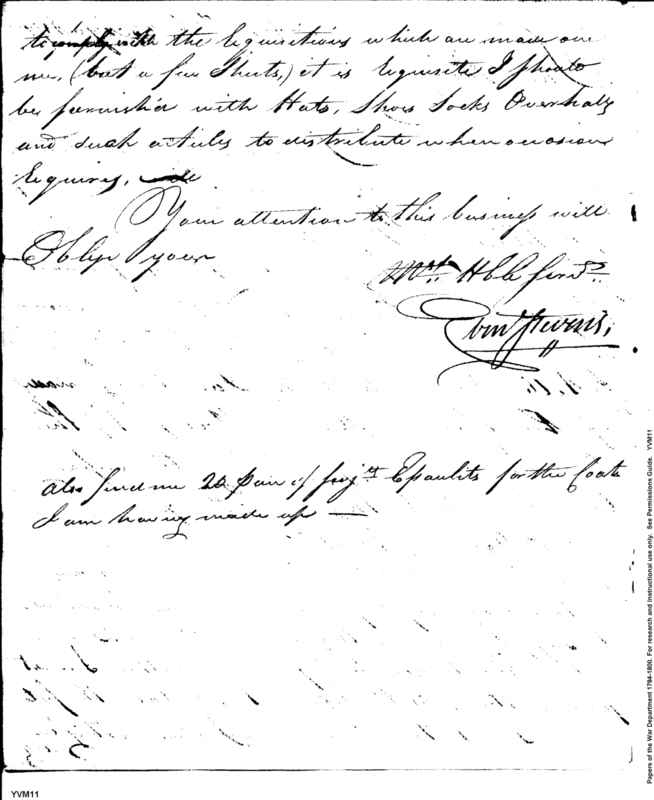 to comply with the requisitions which are made on
me, (but a few Shirts,) it is requisite I should
be furnish'd with Hats, Shoes Socks Overhalls
and such articles to distribute when occasion
requires,
Your attention to this business will
Oblige your
Mst. Hble servt.
Eben Stevens,
also send me 20 Pair of serjt. Epaulits for the Coats
I am having made up —
Papers of the War Department 1784-1800. For research and instructional use only. See Permissions Guide. YVM11
YVM11